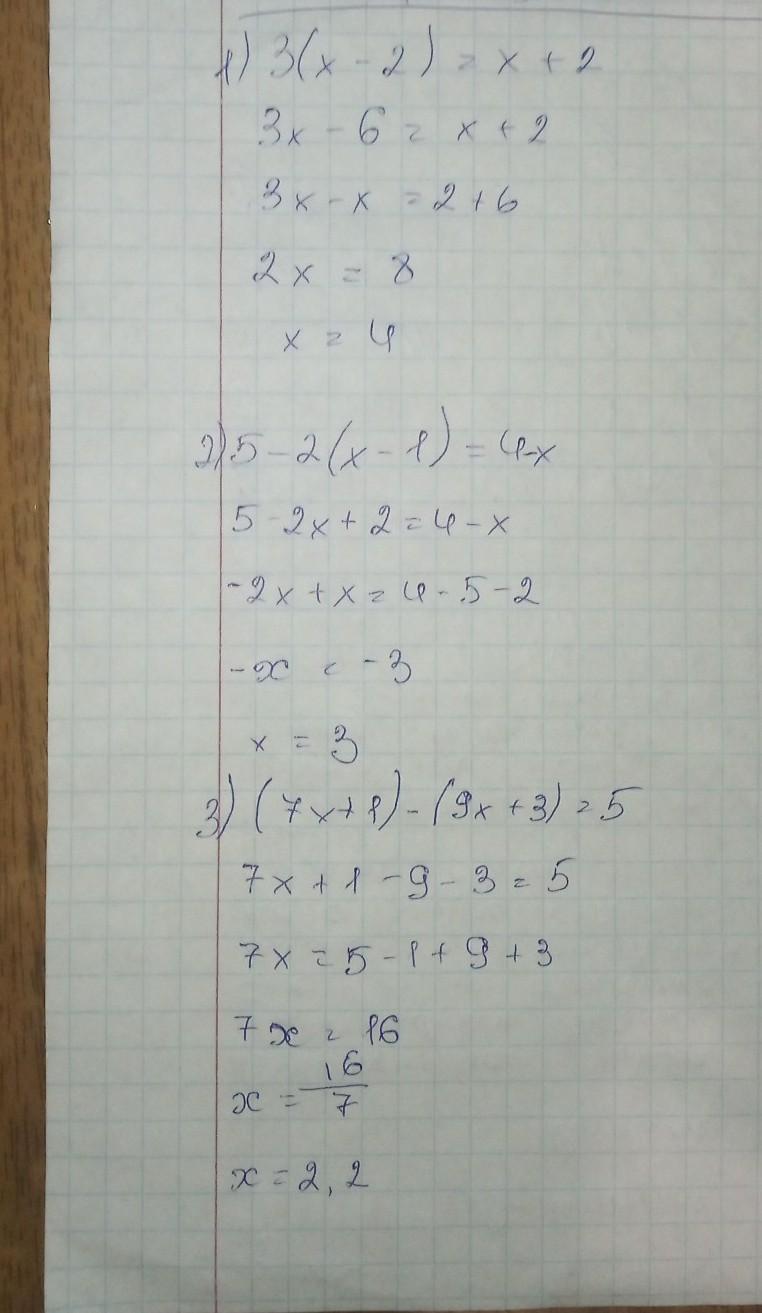 1) 3(x - 2) = x + 2
3x - 6 = x + 2
3x - x = 2 + 6
2x = 8
x = 4
2) 5 - 2(x - 1) = 4-x
5 - 2x + 2 = 4 - x
-2x + x = 4 - 5 - 2
-x = -3
x = 3
3) (7x+1) - (9x + 3) = 5
7x + 1 - 9 - 3 = 5
7x = 5 - 1 + 9 + 3
7x = 16
x = 16/7
x = 2,2